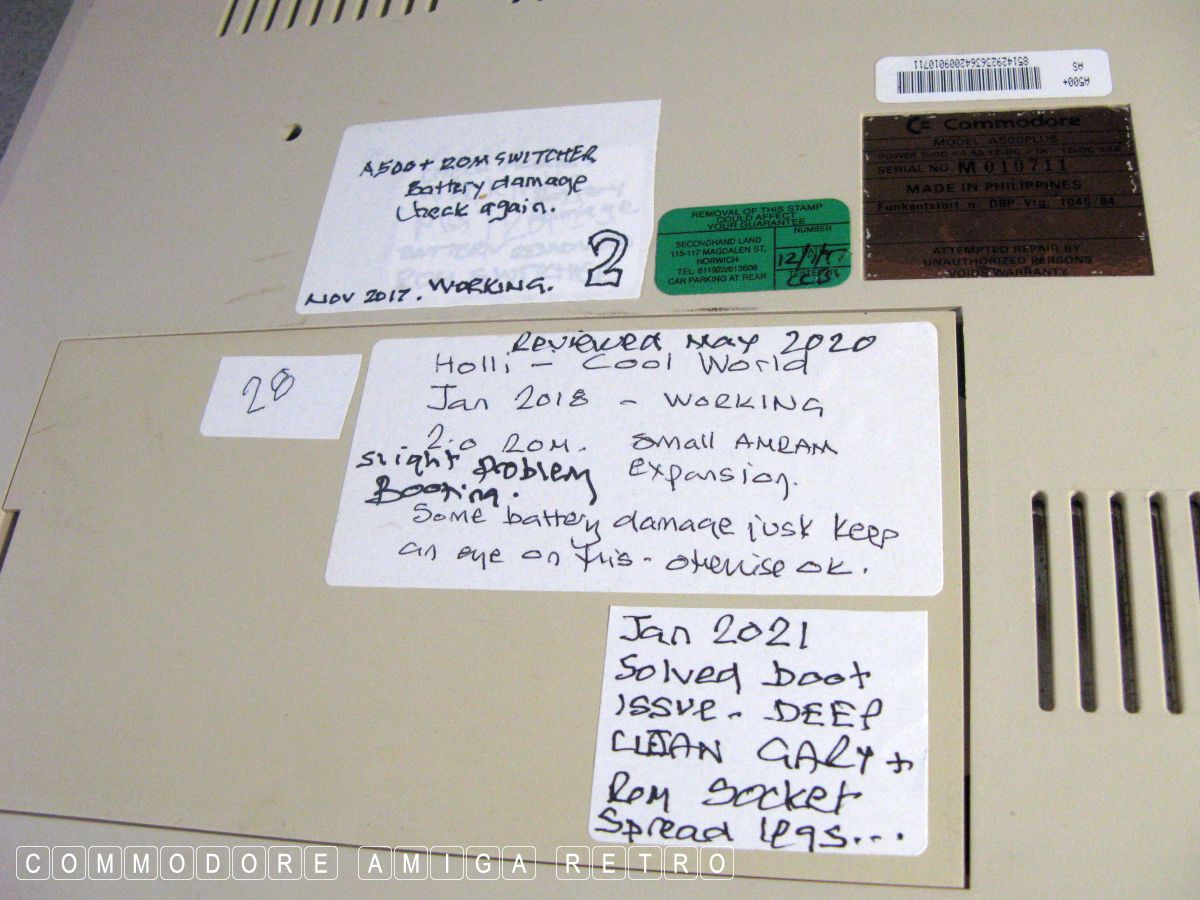 8514292363642009010711
A500+ AS
Commodore
MODEL A500PLUS
SERIAL NO M 010711
MADE IN PHILIPPINES
Funkentstört n. DBP-Vfg. 1046/84
ATTEMPTED REPAIR BY
UNAUTHORIZED PERSONS
VOIDS WARRANTY
A500+ ROM SWITCHER
Battery damage
Check again.
NOV 2017. WORKING.
2
REMOVAL OF THIS STAMP
COULD AFFECT
YOUR GUARANTEE
SECONDHAND LAND
115-117 MAGDALEN ST.
NORWICH
TEL: 611922/613606
CAR PARKING AT REAR
NUMBER
28
Reviewed May 2020
Holli - Cool World
Jan 2018 - WORKING
2.0 ROM. Small AMRAM
Expansion.
Slight Problem
Booting.
Some battery damage just keep
an eye on this - otherwise ok.
Jan 2021
Solved boot
ISSUE - DEEP
CLEAN GARY +
Rom Socket
Spread legs...
COMMODORE AMIGA RETRO